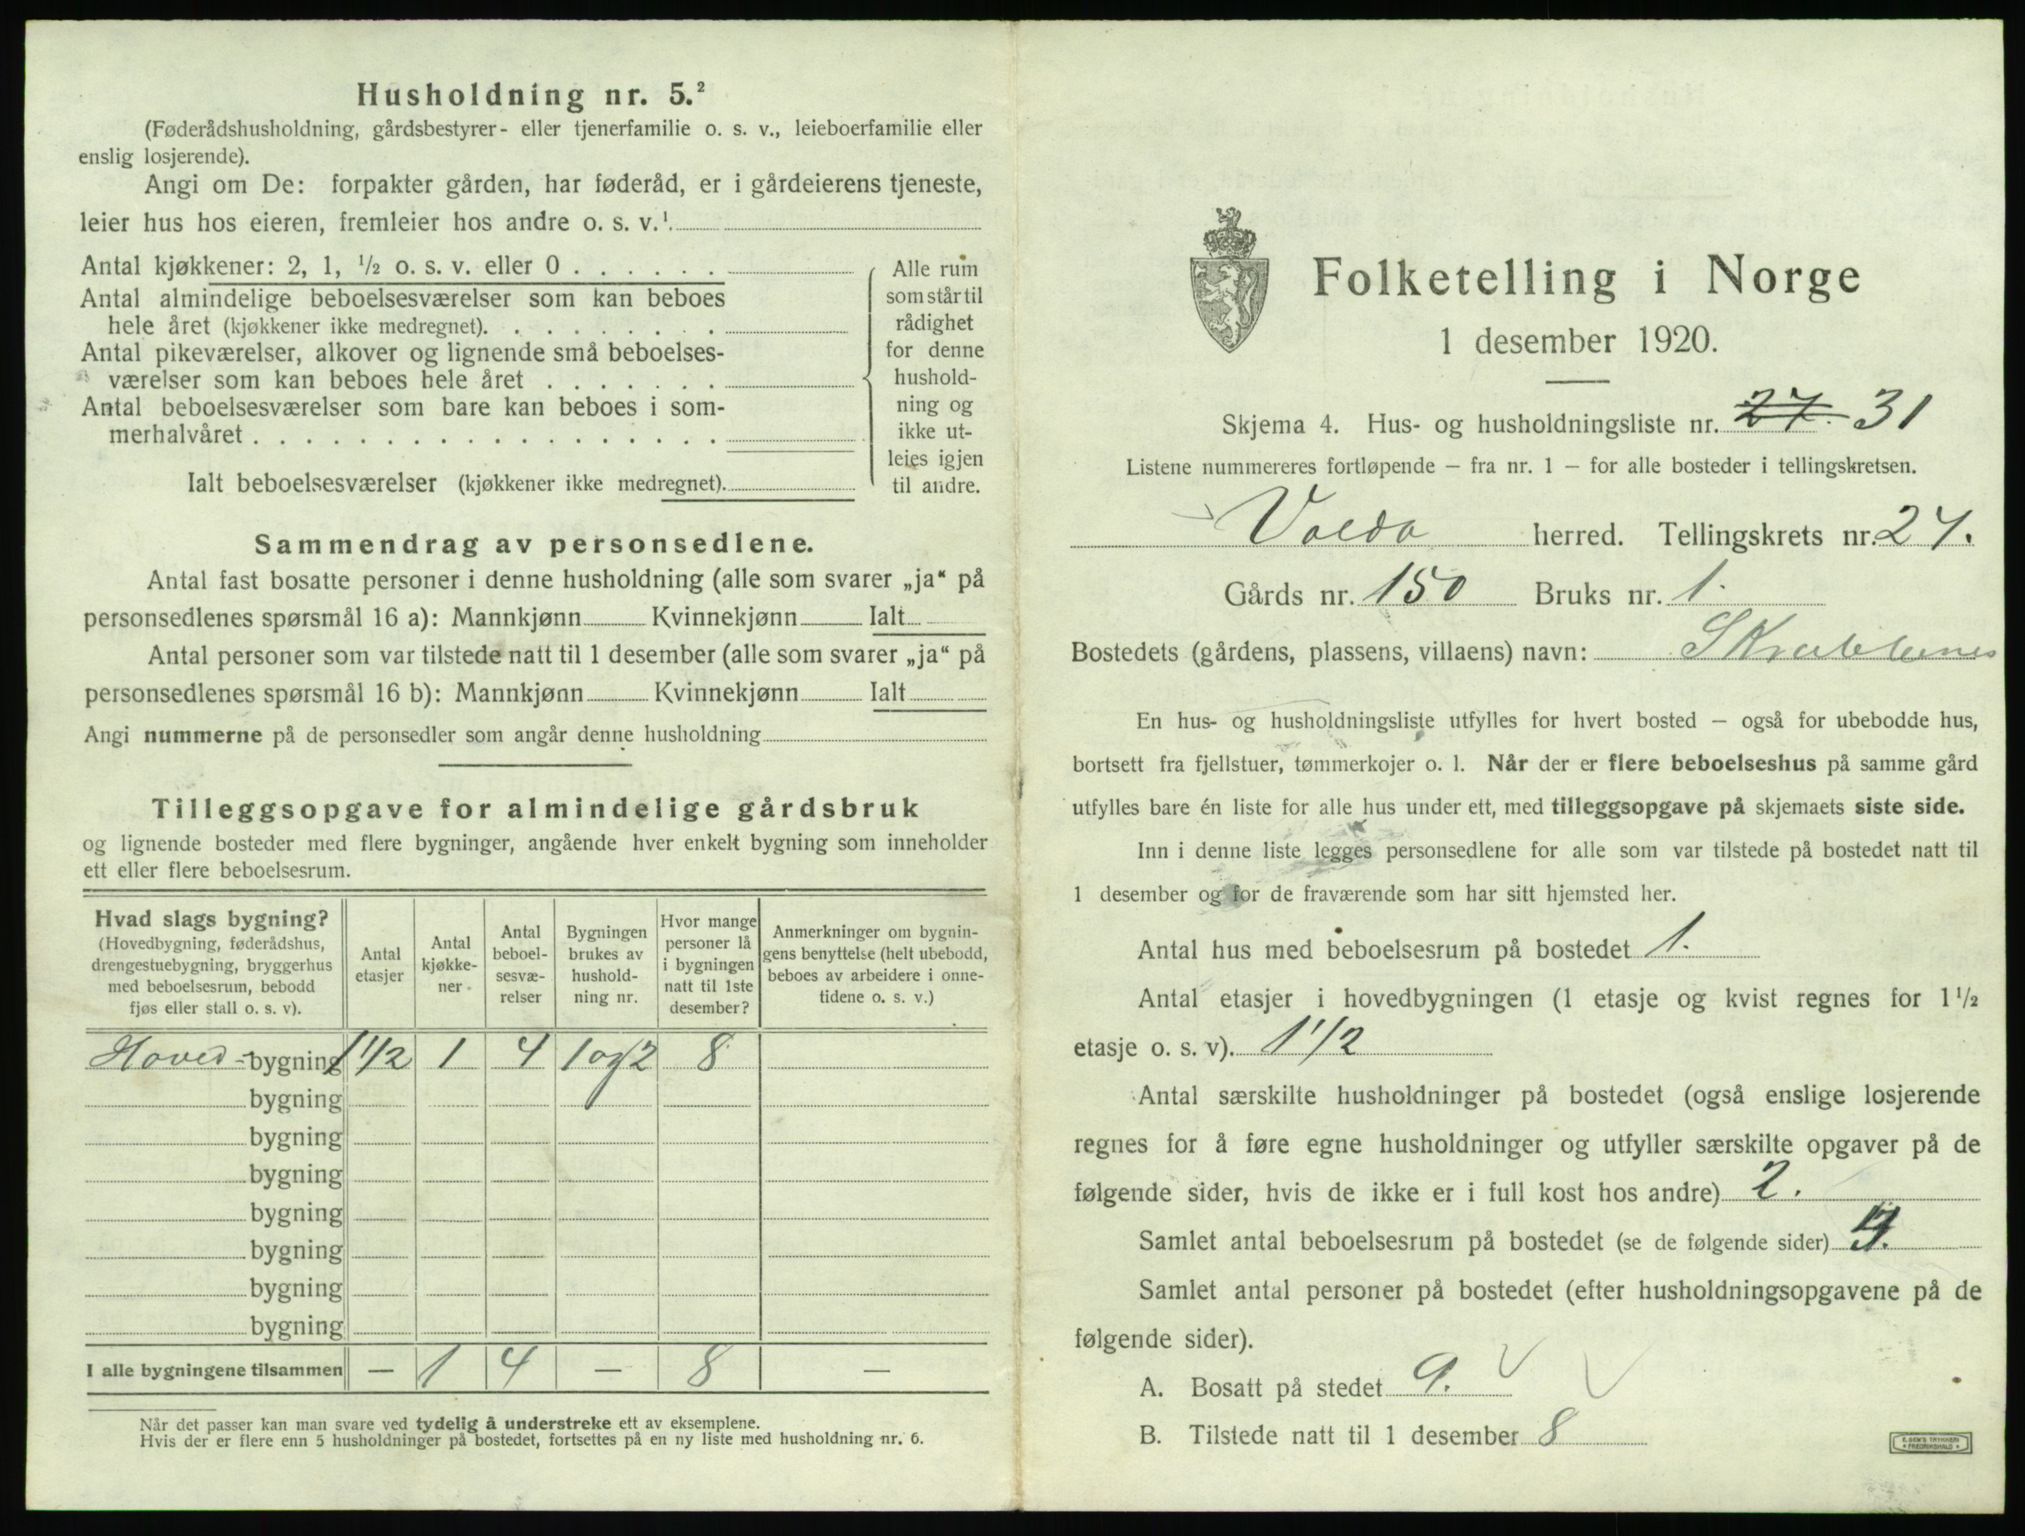 Husholdning nr. 5.²
(Føderådshusholdning, gårdsbestyrer- eller tjenerfamilie o. s. v., leieboerfamilie eller
enslig losjerende).
Angi om De: forpakter gården, har føderåd, er i gårdeierens tjeneste,
leier hus hos eieren, fremleier hos andre o. s. v.¹
Antal kjøkkener: 2, 1, ½ o. s. v. eller 0 . . . . . .
Antal almindelige beboelsesværelser som kan beboes
hele året (kjøkkener ikke medregnet). . . . . . . . .
Antal pikeværelser, alkover og lignende små beboelses-
værelser som kan beboes hele året . . . . . . .
Antal beboelsesværelser som bare kan beboes i som-
merhalvåret . . . . . . . . . . . . . . . . . .
Ialt beboelsesværelser (kjøkkener ikke medregnet).
Alle rum
som står til
rådighet
for denne
hushold-
ning og
ikke ut-
leies igjen
til andre.
Sammendrag av personsedlene.
Antal fast bosatte personer i denne husholdning (alle som svarer „ja“ på
personsedlenes spørsmål 16 a): Mannkjønn Kvinnekjønn Ialt
Antal personer som var tilstede natt til 1 desember (alle som svarer „ja“ på
personsedlenes spørsmål 16 b): Mannkjønn Kvinnekjønn Ialt
Angi nummerne på de personsedler som angår denne husholdning
Tilleggsopgave for almindelige gårdsbruk
og lignende bosteder med flere bygninger, angående hver enkelt bygning som inneholder
ett eller flere beboelsesrum.
Hvad slags bygning?
(Hovedbygning, føderådshus,
drengestuebygning, bryggerhus
med beboelsesrum, bebodd
fjøs eller stall o. s. v).
Antal
etasjer
Antal
kjøkke-
ner
Antal
beboel-
sesvæ-
relser
Bygningen
brukes av
hushold-
ning nr.
Hvor mange
personer lå
i bygningen
natt til 1ste
desember?
Anmerkninger om bygnin-
gens benyttelse (helt ubebodd,
beboes av arbeidere i onne-
tidene o. s. v.)
Hoved- bygning 1 1/2 1 4 1 og 2 8
bygning
bygning
bygning
bygning
bygning
bygning
bygning
I alle bygningene tilsammen — 1 4 — 8 —
Når det passer kan man svare ved tydelig å understreke ett av eksemplene.
Hvis der er flere enn 5 husholdninger på bostedet, fortsettes på en ny liste med husholdning nr. 6.
Folketelling i Norge
1 desember 1920.
Skjema 4. Hus- og husholdningsliste nr. 27. 31
Listene nummereres fortløpende – fra nr. 1 – for alle bosteder i tellingskretsen.
Volda herred. Tellingskrets nr. 27.
Gårds nr. 150 Bruks nr. 1.
Bostedets (gårdens, plassens, villaens) navn: Skrubbenes
En hus- og husholdningsliste utfylles for hvert bosted – også for ubebodde hus,
bortsett fra fjellstuer, tømmerkojer o. l. Når der er flere beboelseshus på samme gård
utfylles bare én liste for alle hus under ett, med tilleggsopgave på skjemaets siste side.
Inn i denne liste legges personsedlene for alle som var tilstede på bostedet natt til
1 desember og for de fraværende som har sitt hjemsted her.
Antal hus med beboelsesrum på bostedet 1.
Antal etasjer i hovedbygningen (1 etasje og kvist regnes for 1½
etasje o. s. v). 1 1/2
Antal særskilte husholdninger på bostedet (også enslige losjerende
regnes for å føre egne husholdninger og utfyller særskilte opgaver på de
følgende sider, hvis de ikke er i full kost hos andre) 2.
Samlet antal beboelsesrum på bostedet (se de følgende sider)
Samlet antal personer på bostedet (efter husholdningsopgavene på de
følgende sider).
A. Bosatt på stedet 9.
B. Tilstede natt til 1 desember 8
E. SEM'S TRYKKERI
• FREDRIKSHALD •